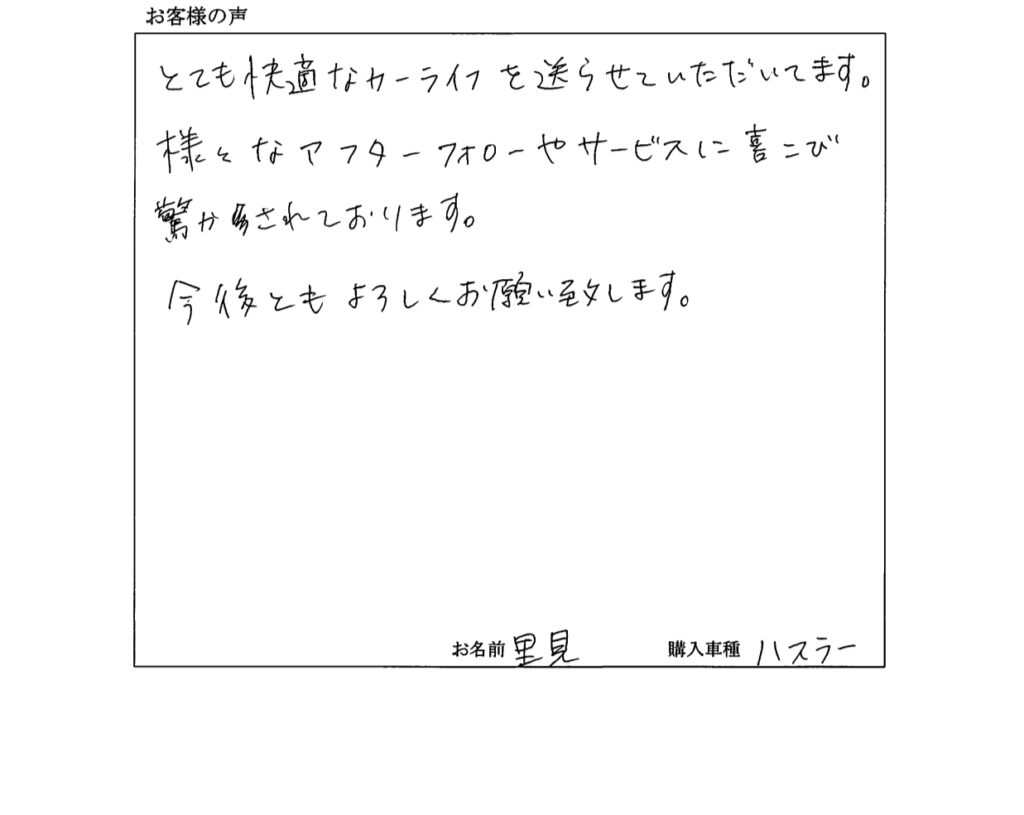 お客様の声
とても快適なカーライフを送らせていただいてます。
様々なアフターフォローやサービスに喜こび
驚かされております。
今後ともよろしくお願い致します。
お名前 里見 購入車種 ハスラー